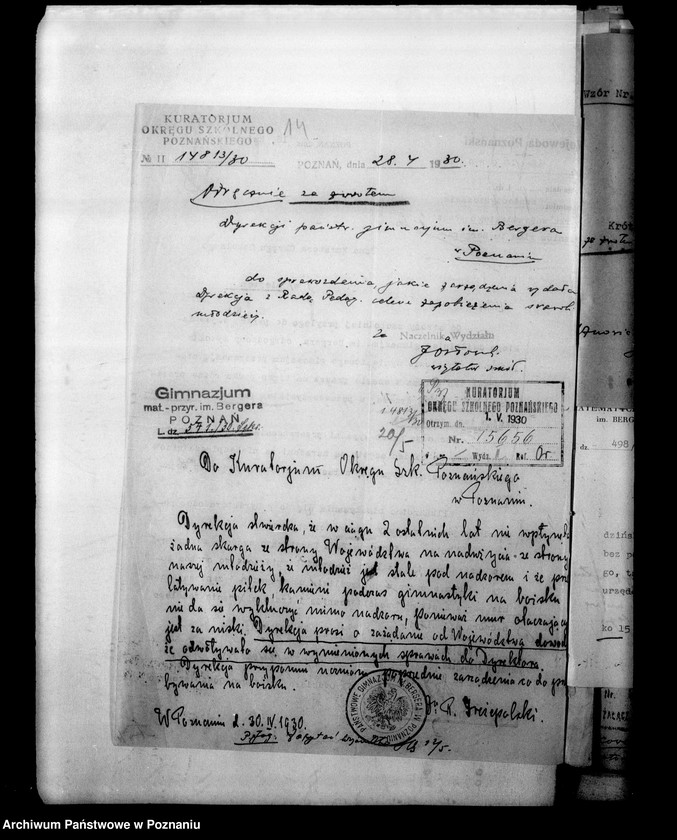 KURATORJUM
OKRĘGU SZKOLNEGO
POZNAŃSKIEGO
14
№ II 14813/30
POZNAŃ, dnia 28. 4 1930.
Odręcznie za zwrotem
Dyrekcji państw. gimnazjum im. Bergera
w Poznaniu
do sprawozdania, jakie zarządzenia wydała
Dyrekcja z Radą Pedag. celem zapobieżenia
młodzieży.
za Naczelnika Wydziału
Gimnazjum
mat.-przyr. im. Bergera
POZNAŃ
L. dz.
KURATORJUM
OKRĘGU SZKOLNEGO POZNAŃSKIEGO
Otrzym. dn. 1. V. 1930
Nr. 15656
Wydz. Ref. Or
14813/30
20/5
Do Kuratorjum Okręgu Szk. Poznańskiego
w Poznaniu.
Dyrekcja stwierdza, że w ciągu 2 ostatnich lat nie wpłynęła
żadna skarga ze strony Województwa na nadużycia ze strony
naszej młodzieży, że młodzież jest stale pod nadzorem i że
piłek, kamieni podczas gimnastyki na boisku
nie da się wykluczyć mimo nadzoru, ponieważ mur otaczający
jest za niski. Dyrekcja prosi o zażądanie od Województwa
że odwoływało się w wymienionych sprawach do Dyrektora.
Dyrekcja przypomni
poprzednie zarządzenia co do
bywania na boisku.
W Poznaniu d. 30. IV. 1930.
PAŃSTWOWE GIMNAZJUM BERGERA W POZNANIU
Dr. R.
12/5.
Wzór Nr.
im. BERG
dz. 498
bez p
go, t
urzęd
ko 15
Nr.
ZAŁĄCZ
Archiwum Państwowe w Poznaniu